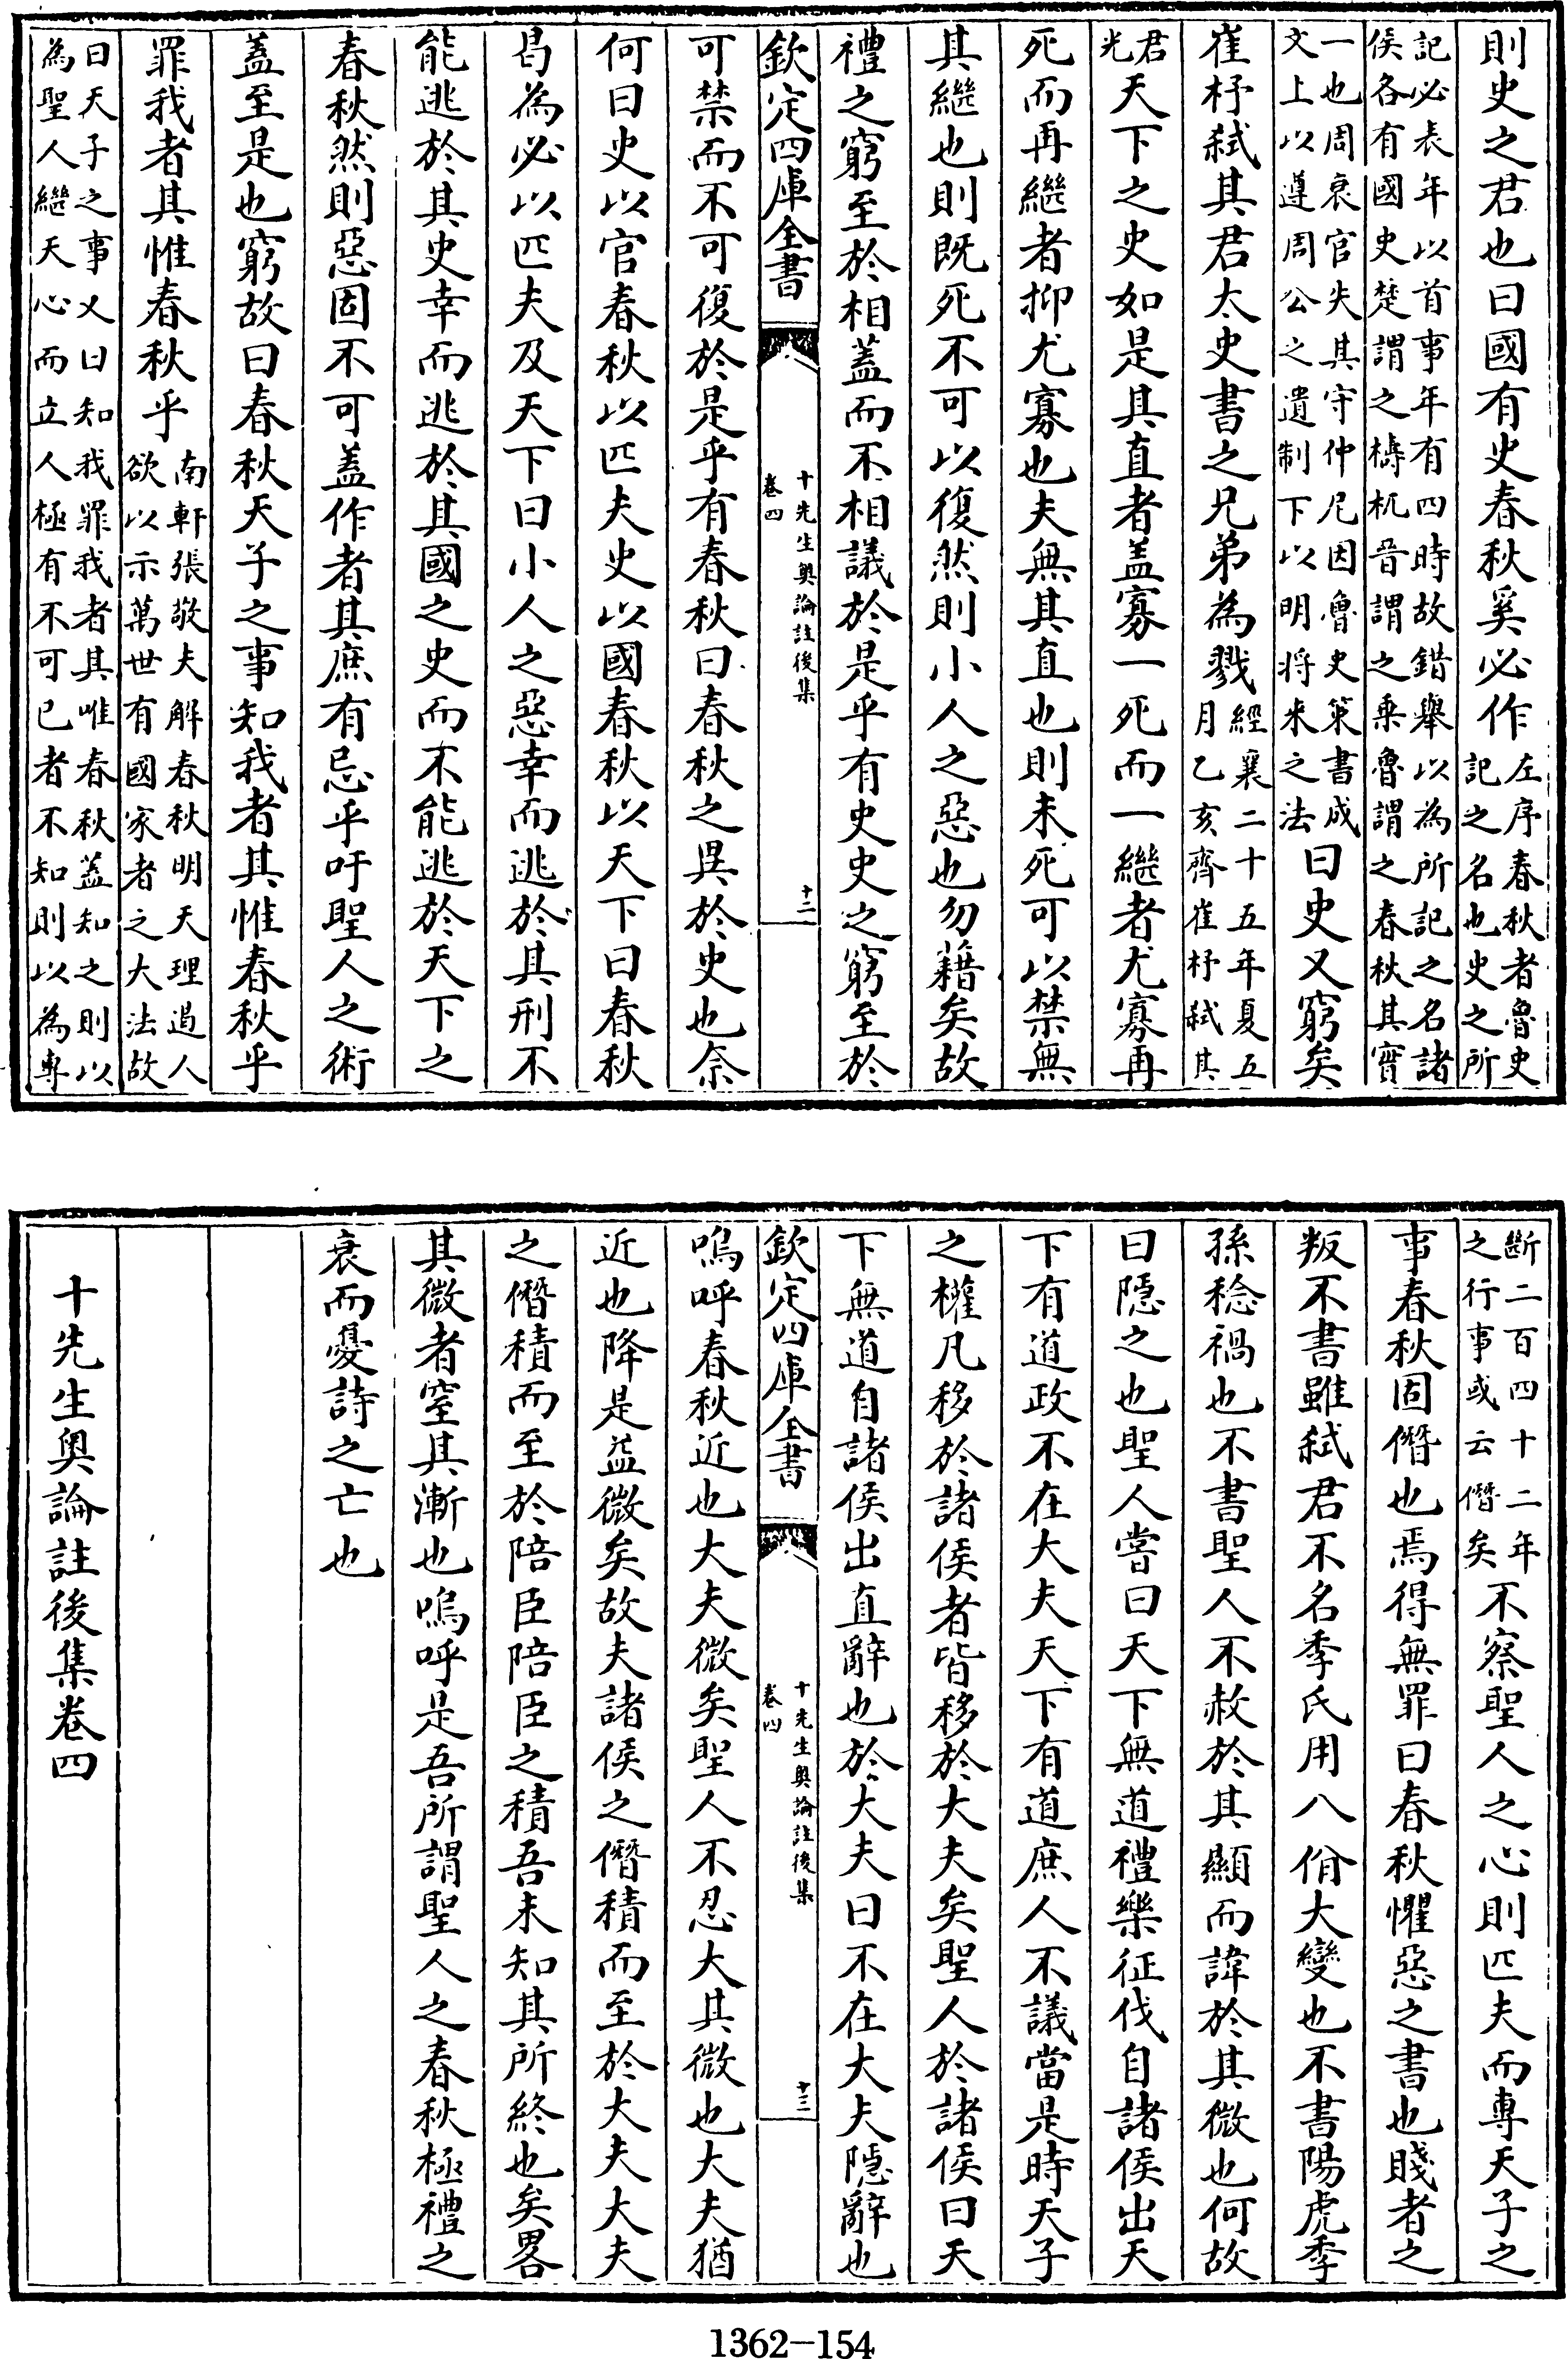 則史之君也曰國有史春秋奚必作左序春秋者魯史
記之名也史之所
記必表年以首事年有四時故錯舉以為所記之名諸
侯各有國史楚謂之檮杌晉謂之乗魯謂之春秋其實
一也周衰官失其守仲尼因魯史策書成
文上以遵周公之遺制下以明將来之法曰史又窮矣
崔杼弑其君太史書之兄弟為戮經襄二十五年夏五
月乙亥齊崔杼弑其
君
光天下之史如是其直者盖寡一死而一繼者尤寡再
死而再繼者抑尤寡也夫無其直也則未死可以禁無
其繼也則既死不可以復然則小人之惡也勿藉矣故
禮之窮至於相蓋而不相議於是乎有史史之窮至於
欽定四庫全書
十先生奥論註後集
卷四
十二
可禁而不可復於是乎有春秋曰春秋之異於史也奈
何曰史以官春秋以匹夫史以國春秋以天下曰春秋
曷為必以匹夫及天下曰小人之惡幸而逃於其刑不
能逃於其史幸而逃於其國之史而不能逃於天下之
春秋然則惡固不可蓋作者其庶有忌乎吁聖人之術
蓋至是也窮故曰春秋天子之事知我者其惟春秋乎
罪我者其惟春秋乎南軒張敬夫解春秋明天理遏人
欲以示萬世有國家者之大法故
曰天子之事又曰知我罪我者其唯春秋蓋知之則以
為聖人繼天心而立人極有不可已者不知則以為專
斷二百四十二年
之行事或云僭矣不察聖人之心則匹夫而專天子之
事春秋固僭也焉得無罪曰春秋懼惡之書也賤者之
叛不書雖弑君不名季氏用八佾大變也不書陽虎季
孫稔禍也不書聖人不赦於其顯而諱於其微也何故
曰隱之也聖人嘗曰天下無道禮樂征伐自諸侯出天
下有道政不在大夫天下有道庶人不議當是時天子
之權凡移於諸侯者皆移於大夫矣聖人於諸侯曰天
下無道自諸侯出直辭也於大夫曰不在大夫隠辭也
欽定四庫全書
十先生奥論註後集
卷四
十三
嗚呼春秋近也大夫微矣聖人不忍大其微也大夫猶
近也降是益微矣故夫諸侯之僭積而至於大夫大夫
之僭積而至於陪臣陪臣之積吾未知其所終也矣畧
其微者窒其漸也嗚呼是吾所謂聖人之春秋極禮之
衰而憂詩之亡也
十先生奥論註後集卷四
1362-154